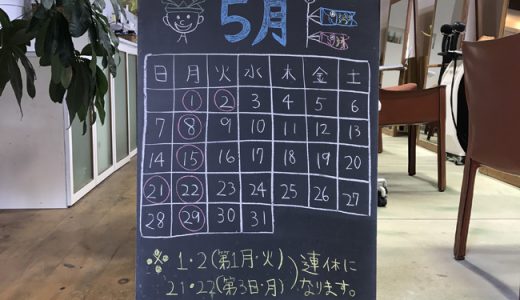 5月
日 月 火 水 木 金 土
1 2 3 4 5 6
7 8 9 10 11 12 13
14 15 16 17 18 19 20
21 22 23 24 25 26 27
28 29 30 31
※ 1・2(第1月・火)
21・22(第3日・月)
連休に
なります。